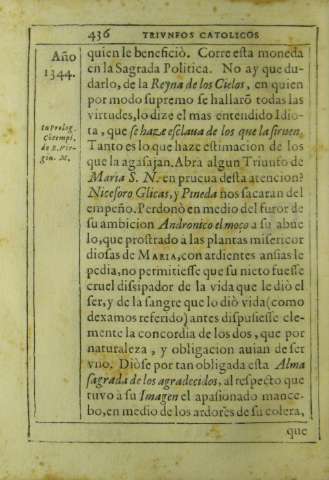 436 TRIVNFOS CATOLICOS
Año
1344.
quien le benefició. Corre esta moneda
en la Sagrada Politica. No ay que du-
darlo, de la Reyna de los Cielos, en quien
por modo supremo se hallarō todas las
virtudes, lo dize el mas entendido Idio-
ta, que se haze esclaua de los que la siruen.
in Prolog.
de B. Vir-
gin. M.
Tanto es lo que haze estimacion de los
que la agasajan. Abrà algun Triunfo de
Maria S. N. en prueua desta atencion?
Niceforo Glicas, y Pineda nos sacaràn del
empeño. Perdonò en medio del furor de
su ambicion Andronico el moço a su abue
lo, que prostrado a las plantas misericor
diosas de MARIA, con ardientes ansias le
pedia, no permitiesse que su nieto fuesse
cruel disipador de la vida que le diò el
ser, y de la sangre que lo diò vida (como
dexamos referido) antes dispusiesse cle-
mente la concordia de los dos, que por
naturaleza, y obligacion auian de ser
vno. Diòse por tan obligada esta Alma
sagrada de los agradecidos, al respecto que
tuvo à su Imagen el apasionado mance-
bo, en medio de los ardores de su colera,
que